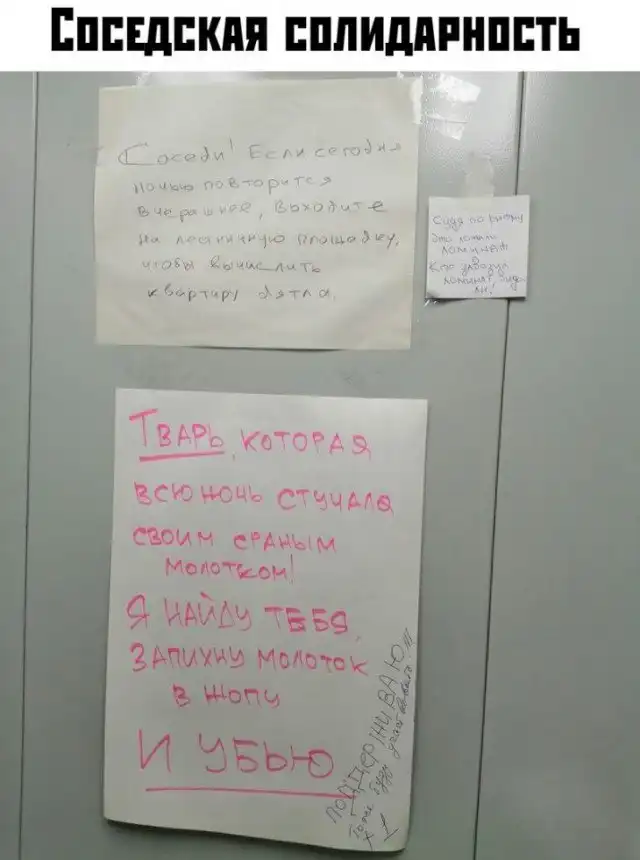 Соседская солидарность
Соседи! Если сегодня
ночью повторится
вчерашнее, выходите
на лестничную площадку,
чтобы вычислить
квартиру дятла.
Судя по ритму
это
Кто
Тварь, которая
всю ночь стучала
своим сраным
молотком!
Я найду тебя,
запихну молоток
в жопу
И убью
Поддерживаю
Тоже буду участвовать!!!